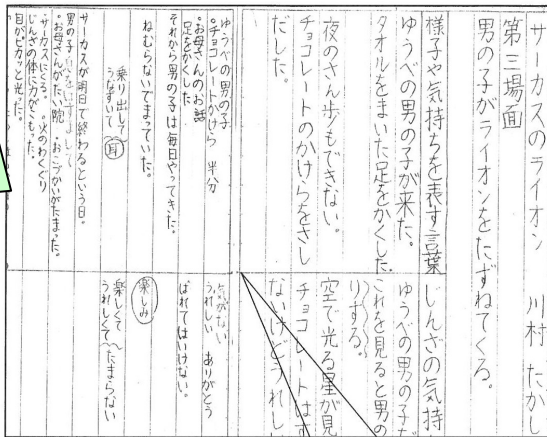 サーカスのライオン　川村　たかし
第三場面
男の子がライオンをたずねてくる。
様子や気持ちを表す言葉
じんざの気持
ゆうべの男の子が来た。
ゆうべの男の子だ
タオルをまいた足をかくした。
これを見ると男の
りする。
夜のさん歩もできない。
空で光る星が見
チョコレートのかけらをさし
だした。
チョコレートはす
ないけどうれし
ゆうべの男の子
・チョコレートかけら　半分
・お母さんのお話
足をかくした
気がない
うれしい　ありがとう
ばれてはいけない。
それから男の子は毎日やってきた。
ねむらないでまっていた。
乗り出して
うなずいて　耳
楽しみ
楽しくて
うれしくて〜たまらない
サーカスが明日で終わるという日。
男の子
・お母さんがたい院　・おこづかいがたまった。
・サーカスにくる。・火のわくぐり
じんざの体に力がこもった。
目がピカッと光った。